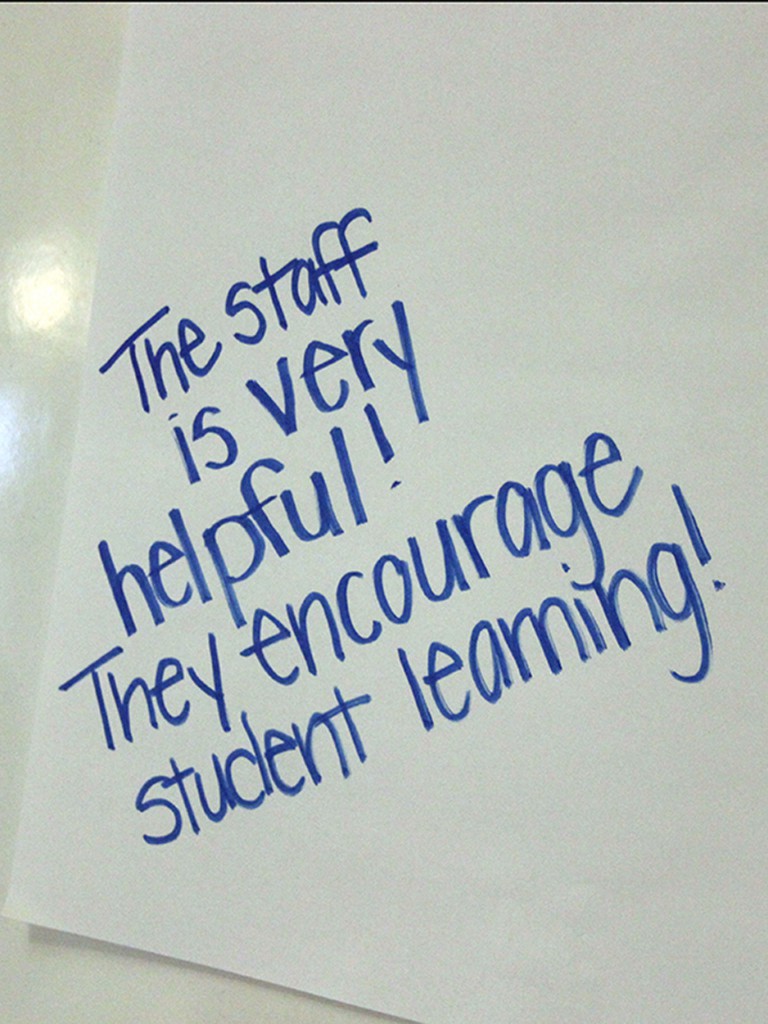 The staff
is very
helpful!
They encourage
student learning!